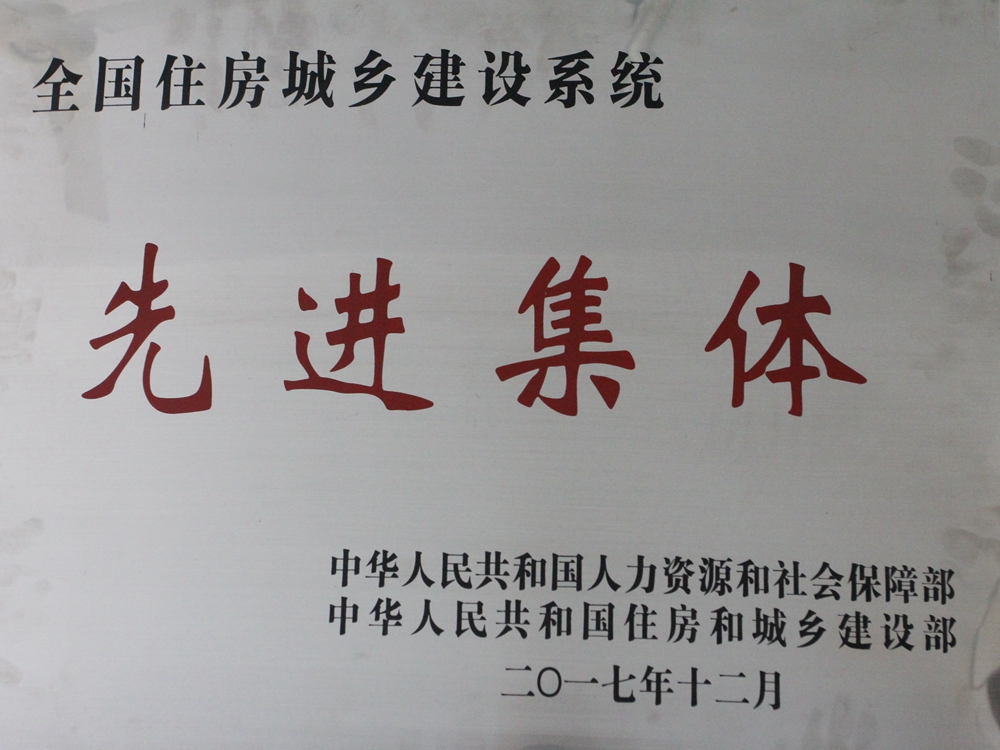 全国住房城乡建设系统
先进集体
中华人民共和国人力资源和社会保障部
中华人民共和国住房和城乡建设部
二〇一七年十二月